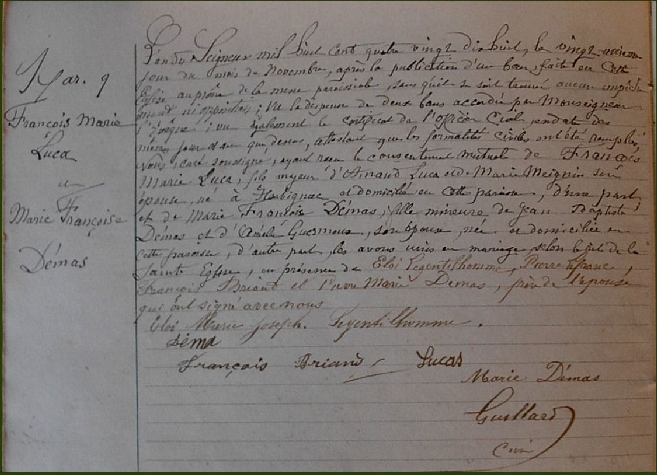 Mar. 9
François Marie
Luca
et
Marie Françoise
Démas
L'an du Seigneur mil huit cent quatre vingt dix huit, le vingt
jour du mois de Novembre, après la publication d'un ban, faite en cette
Eglise au prône de la messe paroissiale, sans qu'il se soit trouvé aucun empêche
ment ni opposition; Vu la dispense de deux bans accordée par Monseigneur
l'Evêque; vu également le certificat de l'officier Civil, en date du
même jour que dessus, attestant que les formalités civiles ont été remplies,
Nous, curé soussigné, ayant reçu le consentement mutuel de François
Marie Luca, fils majeur d' Luca et de Marie son
épouse, né à et domicilié en cette paroisse, d'une part,
et de Marie Françoise Démas, fille mineure de Jean Baptiste
Démas et d' son épouse, née et domiciliée en
cette paroisse, d'autre part, les avons unis en mariage selon le rit de la
Sainte Eglise, en présence de Eloi Legentilhomme, Pierre Lefranc,
François Briand et Marie Démas, de l'épouse
qui ont signé avec nous
Eloi Marie Joseph Legentilhomme.
Déma
François Briand Lucas
Marie Démas
Guillard
Curé